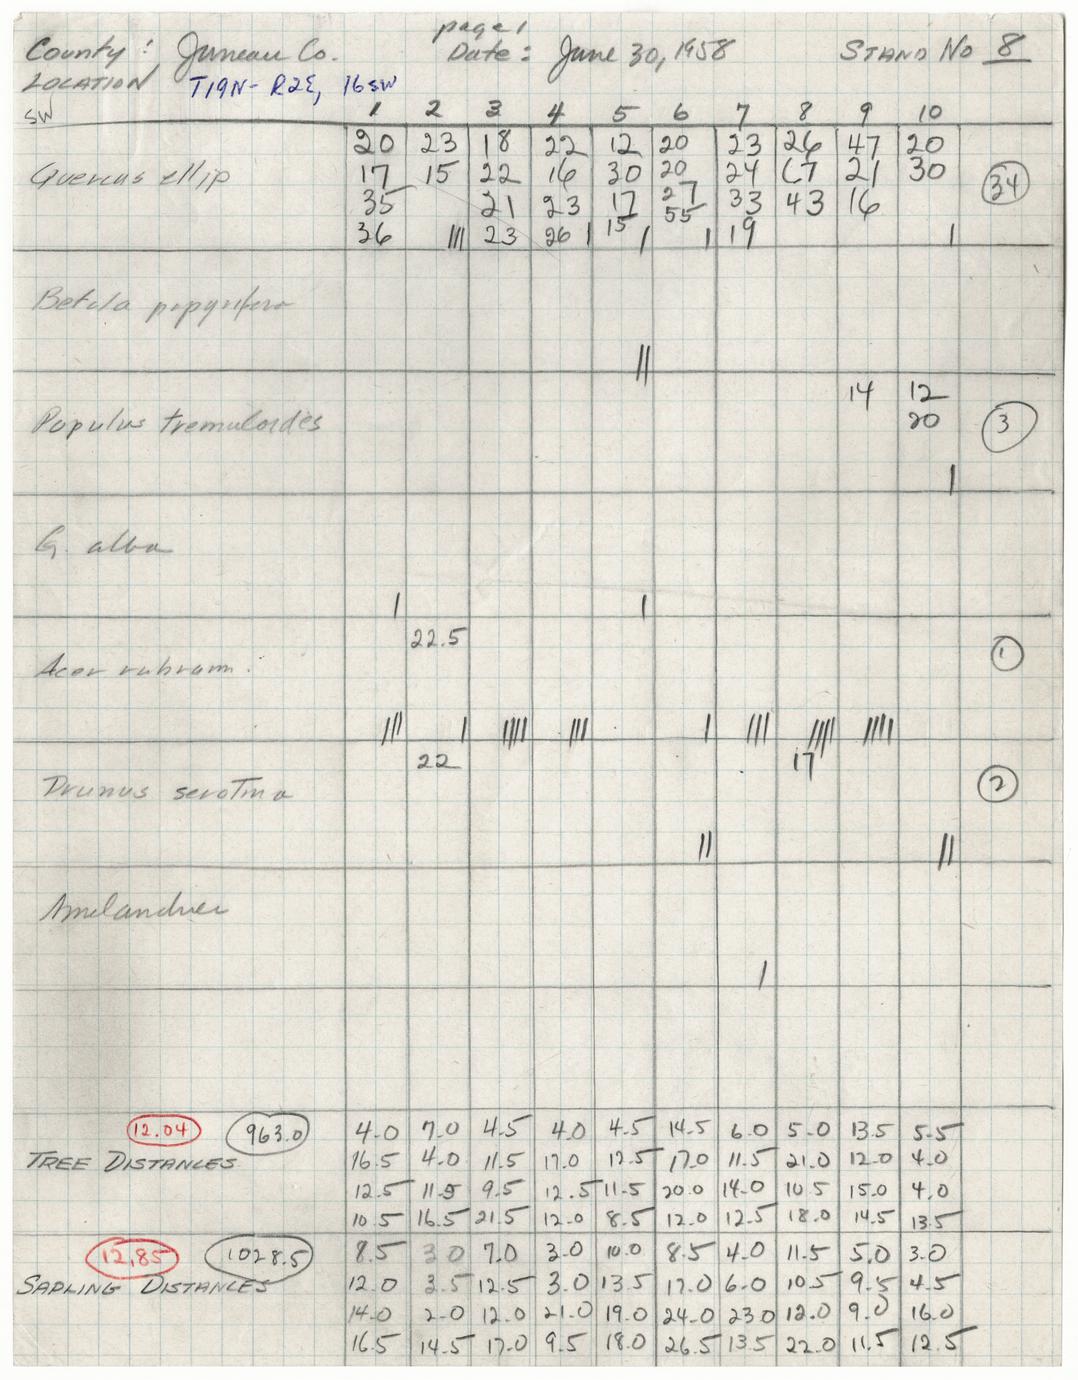 page 1
County: Juneau Co. Date: June 30, 1958 STAND No 8
LOCATION T19N- R2E, 16SW
SW 1 2 3 4 5 6 7 8 9 10
20 23 18 22 12 20 23 26 47 20
Quercus ellip 17 15 22 16 30 20 24 17 21 30 34
35 21 23 17 27 33 43 16
55
36 |||| 23 26 | 15 | | 19 |
Betula papyrifera
||
14 12
Populus tremuloides 20 3
|
Q. alba
| |
22.5
Acer rubrum 1
||| | |||| ||| | ||| |||| ||||
22 17
Prunus serotina 2
|| ||
Amelanchier
|
12.04 963.0 4.0 7.0 4.5 4.0 4.5 14.5 6.0 5.0 13.5 5.5
TREE DISTANCES 16.5 4.0 11.5 17.0 12.5 17.0 11.5 21.0 12.0 4.0
12.5 11.5 9.5 12.5 11.5 20.0 14.0 10.5 15.0 4.0
10.5 16.5 21.5 12.0 8.5 12.0 12.5 18.0 14.5 13.5
12.85 1028.5 8.5 3.0 7.0 3.0 10.0 8.5 4.0 11.5 5.0 3.0
SAPLING DISTANCES 12.0 3.5 12.5 3.0 13.5 17.0 6.0 10.5 9.5 4.5
14.0 2.0 12.0 21.0 19.0 24.0 23.0 12.0 9.0 16.0
16.5 14.5 17.0 9.5 18.0 26.5 13.5 22.0 11.5 12.5